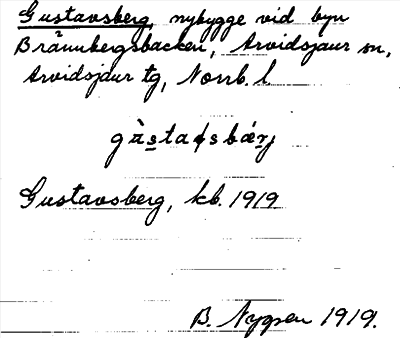 Gustavsberg, nybygge vid byn
Brännbergsbacken, Arvidsjaur sn,
Arvidsjaur tg, Norrb. l
Gustavsberg, kb. 1919
B. Nygren 1919.